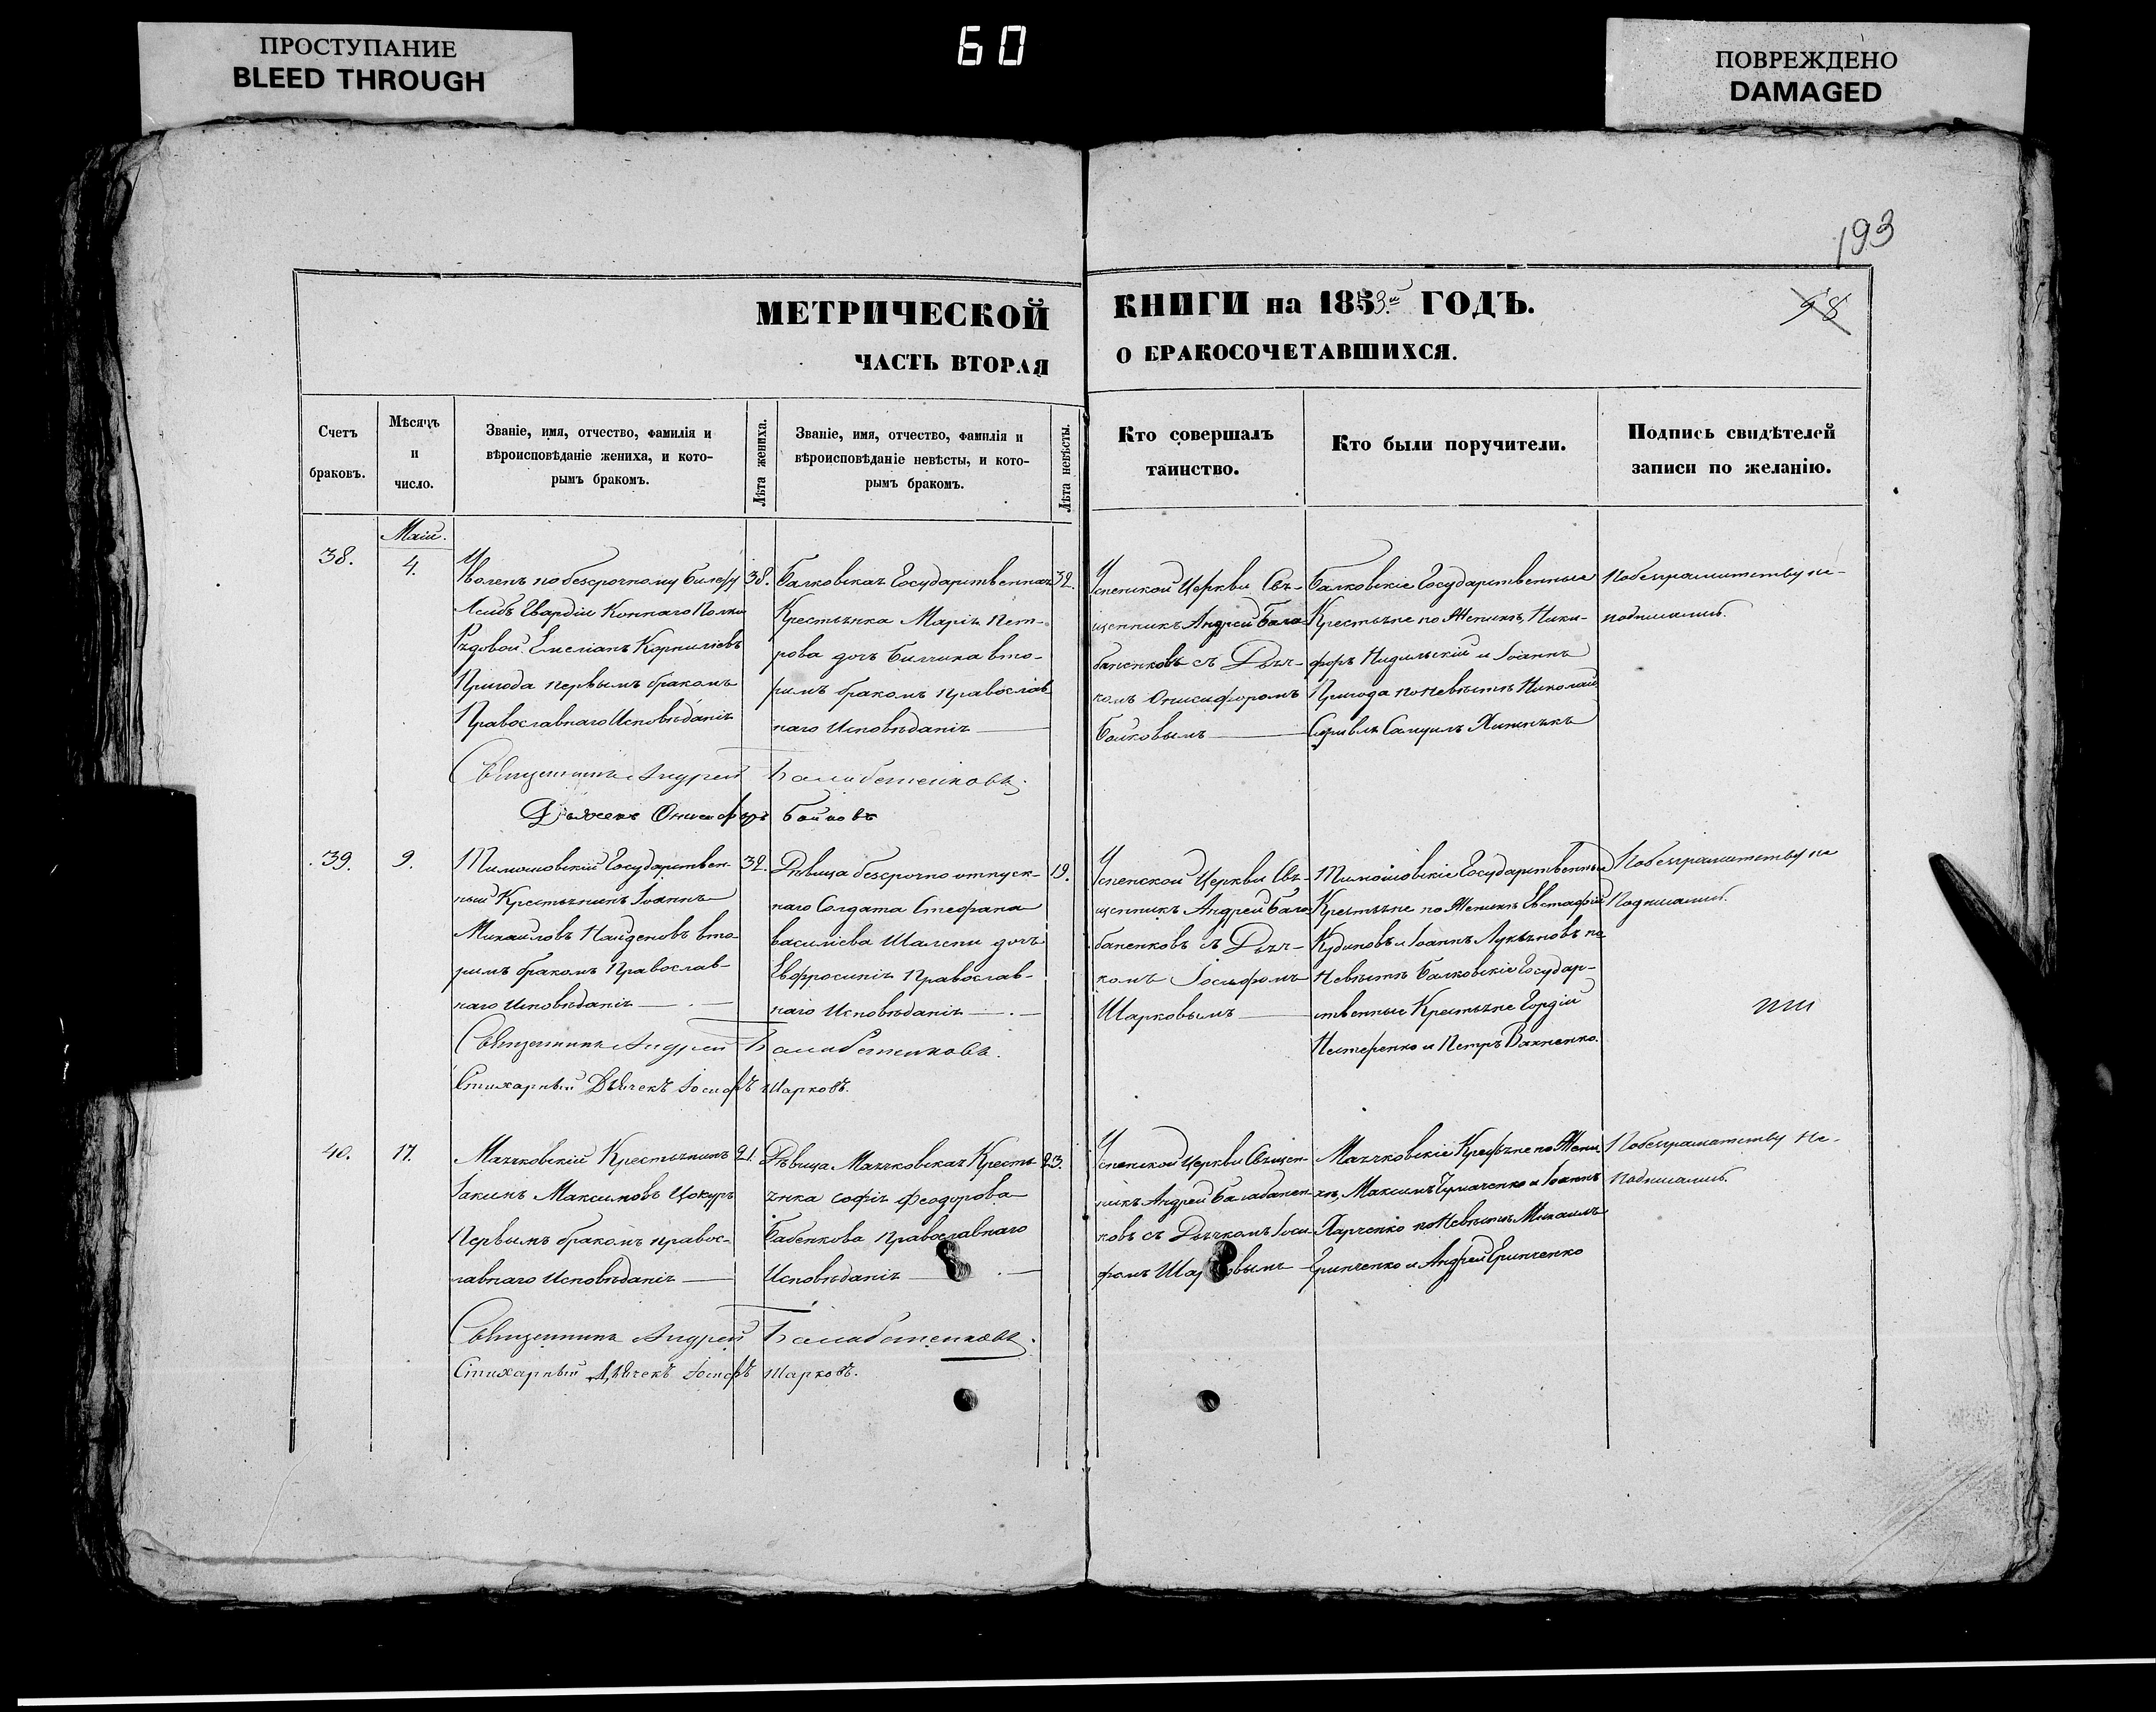 ПРОСТУПАНИЕ
BLEED THROUGH
60
ПОВРЕЖДЕНО
DAMAGED
193
98
МЕТРИЧЕСКОЙ
КНИГИ на 1853й ГОДЪ.
ЧАСТЬ ВТОРАЯ
О БРАКОСОЧЕТАВШИХСЯ.
Счетъ
браковъ.
Мѣсяцъ
и
число.
Званіе, имя, отчество, фамилія и
вѣроисповѣданіе жениха, и кото-
рымъ бракомъ.
Лѣта жениха.
Званіе, имя, отчество, фамилія и
вѣроисповѣданіе невѣсты, и кото-
рымъ бракомъ.
Лѣта невѣсты.
Кто совершалъ
таинство.
Кто были поручители.
Подпись свидѣтелей
записи по желанію.
38.
Маій.
4.
Уволенъ по безсрочному билету
Лейбъ Гвардіи Коннаго Полка
Рядовой Емеліанъ Корниліевъ
Пригода первымъ бракомъ
Православнаго Исповѣданія
38.
Балковская Государственная
Крестьянка Марія Пет-
рова дочь вто-
римъ бракомъ православ
наго Исповѣданія
32.
Успенской Церкви Свя-
щенникъ Андрей Бала
баненковъ съ Дьяч-
комъ Онисифоромъ
Бойковымъ
Балковскіе Государственные
Крестьяне по Женихѣ, Ники-
форъ и Іоаннъ
Пригода по Невѣстѣ Николай
Самуилъ
По безграмотству не-
подписались.
Священникъ Андрей Балабаненковъ.
Дьячекъ Онисифоръ Бойковъ
39.
9.
Тимошовскій Государствен-
ный Крестьянинъ Іоаннъ
Михаиловъ Найденовъ вто-
римъ бракомъ Православ-
наго Исповѣданія
32.
Дѣвица безсрочно отпуск-
наго Солдата Стефана
Василіева Шалепи дочь
Евфросинія Православ-
наго Исповѣданія
19.
Успенской Церкви Свя-
щенникъ Андрей Бала
баненковъ съ Дьяч-
комъ Іосифомъ
Шарковымъ
Тимошовскіе Государственные
Крестьяне по Женихѣ Евстафій
Кудиновъ и Іоаннъ Лукьяновъ по
Невѣстѣ Балковскіе Государ-
ственные Крестьяне Гордій
Нестеренко и Петръ Вахненко.
По безграмотству не
Подписались.
Священникъ Андрей Балабаненковъ.
Стихарный Дьячекъ Іосифъ Шарковъ.
40.
17.
Маячковскій Крестьянинъ
Іакимъ Максимовъ Цокуръ
Первымъ бракомъ правос-
лавнаго Исповѣданія
21.
Дѣвица Маячковская Кресть-
янка Софія Феодорова
Бабенкова Православнаго
Исповѣданія
23.
Успенской Церкви Священ-
никъ Андрей Балабанен-
ковъ съ Дьячкомъ Іоси-
фомъ Шарковымъ
Маячковскіе Крестьяне по Жени
хѣ, Максимъ Чумаченко и Іоаннъ
Харченко по Невѣстѣ Михаилъ
Гринченко и Андрей Гринченко
По безграматству Не-
Подписались.
Священникъ Андрей Балабаненковъ.
Стихарный Дьячекъ Іосифъ Шарковъ.